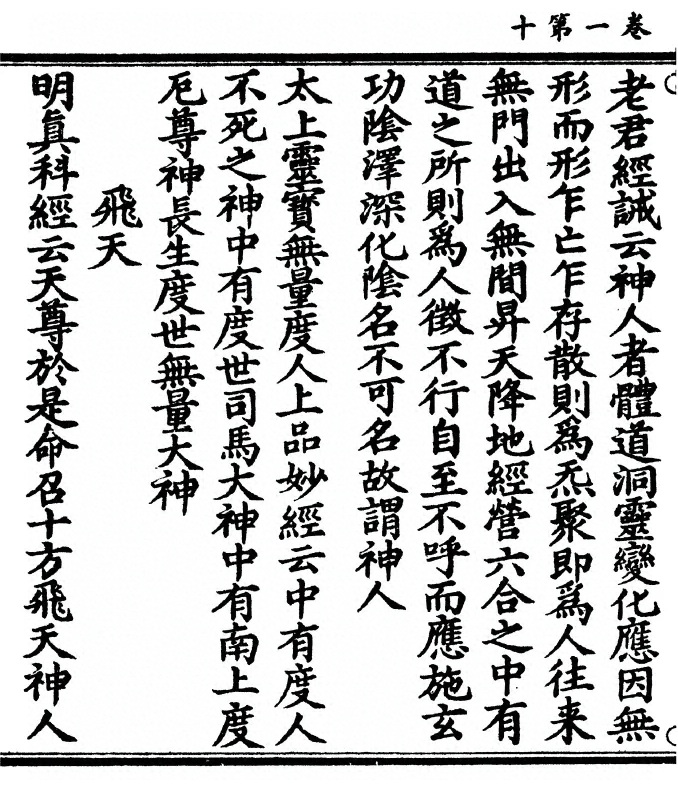 卷一第十
老君經誡云神人者體道洞靈變化應因無
形而形乍亡乍存散則爲炁聚即爲人往来
無門出入無間昇天降地經營六合之中有
道之所則爲人徵不行自至不呼而應施玄
功陰澤深化陰名不可名故謂神人
太上靈寳無量度人上品妙經云中有度人
不死之神中有度世司馬大神中有南上度
厄尊神長生度世無量大神
飛天
明眞科經云天尊於是命召十方飛天神人